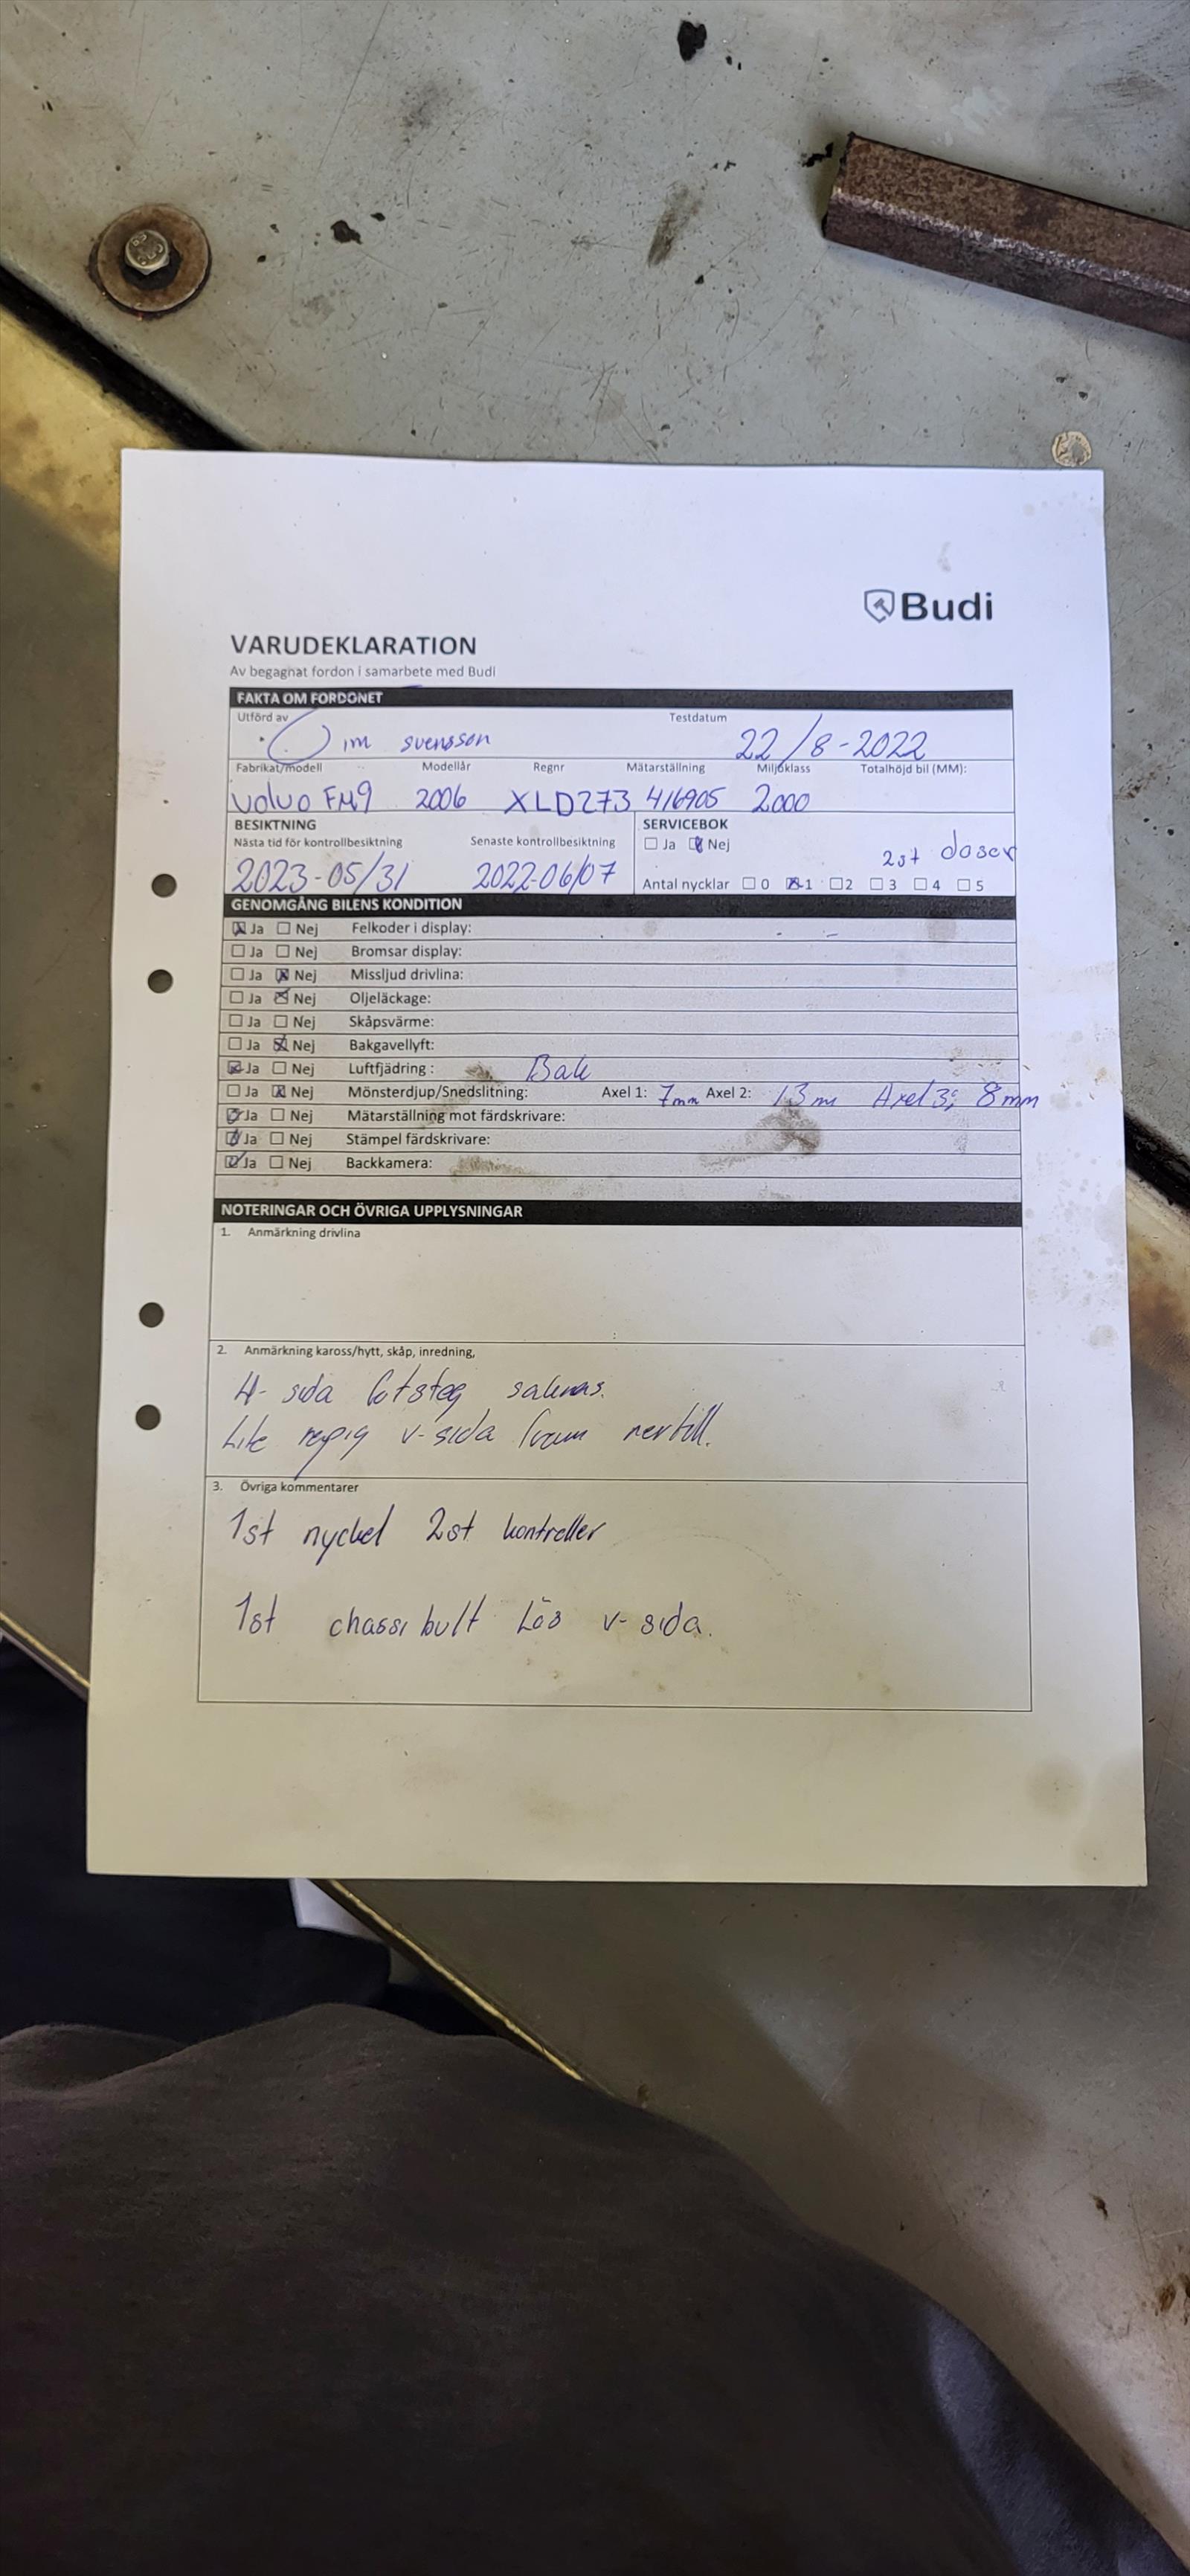 Budi
VARUDEKLARATION
Av begagnat fordon i samarbete med Budi
FAKTA OM FORDONET
Utförd av Testdatum
im svensson 22/8-2022
Fabrikat/modell Modellår Regnr Mätarställning Miljöklass Totalhöjd bil (MM):
Volvo FM9 2006 XLD273 416905 2000
BESIKTNING SERVICEBOK
Nästa tid för kontrollbesiktning Senaste kontrollbesiktning Ja Nej
2st doser
2023-05/31 2022-06/07 Antal nycklar 0 1 2 3 4 5
GENOMGÅNG BILENS KONDITION
Ja Nej Felkoder i display:
Ja Nej Bromsar display:
Ja Nej Missljud drivlina:
Ja Nej Oljeläckage:
Ja Nej Skåpsvärme:
Ja Nej Bakgavellyft:
Ja Nej Luftfjädring: Bak
Ja Nej Mönsterdjup/Snedslitning: Axel 1: 7mm Axel 2: 13 m Axel 3; 8mm
Ja Nej Mätarställning mot färdskrivare:
Ja Nej Stämpel färdskrivare:
Ja Nej Backkamera:
NOTERINGAR OCH ÖVRIGA UPPLYSNINGAR
1. Anmärkning drivlina
2. Anmärkning kaross/hytt, skåp, inredning,
H- sida fotsteg saknas.
Lite repig v-sida fram nertill.
3. Övriga kommentarer
1st nyckel 2st kontroller
1st chassi bult Lös v-sida.